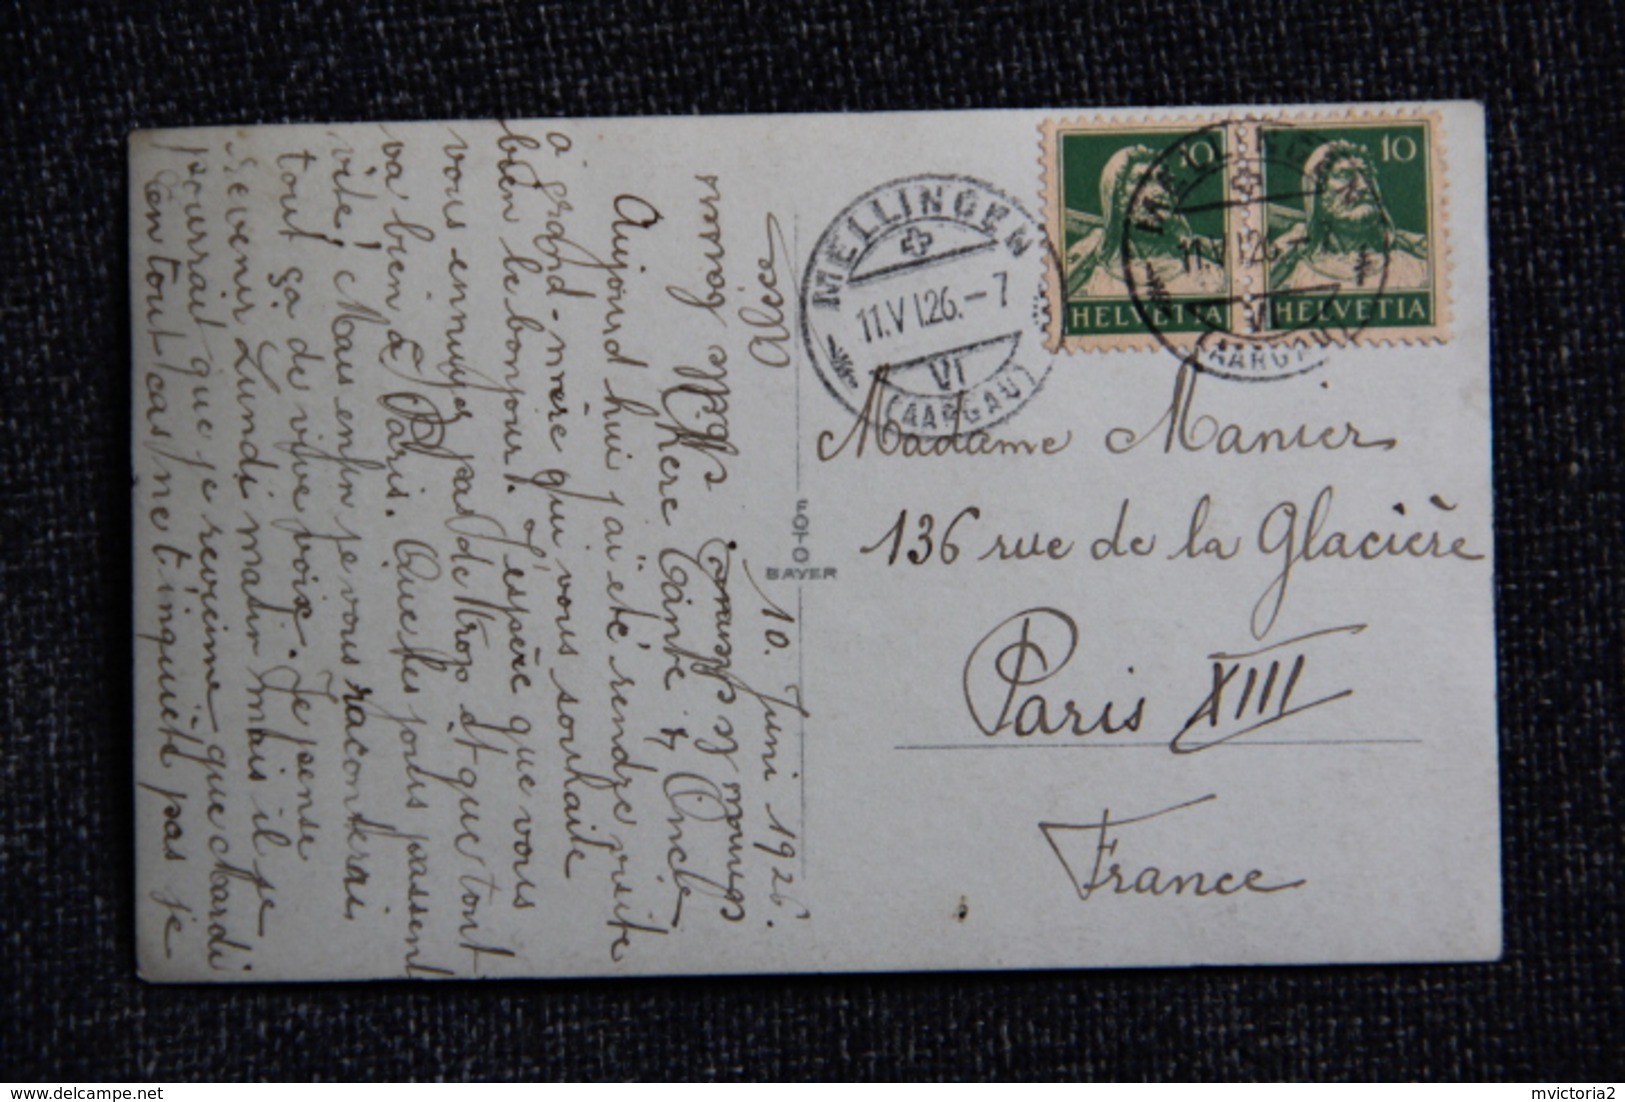 10. Juni 1926.
Chère Tante & Oncle
Aujourd hui j'ai été rendre visite
à grand-mère qui vous souhaite
bien le bonjour. J'espère que vous
vous ennuyer pas de trop et que tout
va bien à Paris. Que les jours passent
vite! Mais enfin je vous raconterai
tout ça de vive voix. Je pense
revenir Lundi matin mais il se
pourrait que je revienne que Mardi
En tout cas ne t'inquiète pas je
baisers
Alice
MELLINGEN
11.VI.26.-7
VI
(AARGAU)
10
HELVETIA
10
HELVETIA
MELLINGEN
11.VI.26.-
VI
(AARGAU)
FOTO
BAYER
Madame Manier
136 rue de la Glacière
Paris XIII
France
delcampe.net
mvictoria2